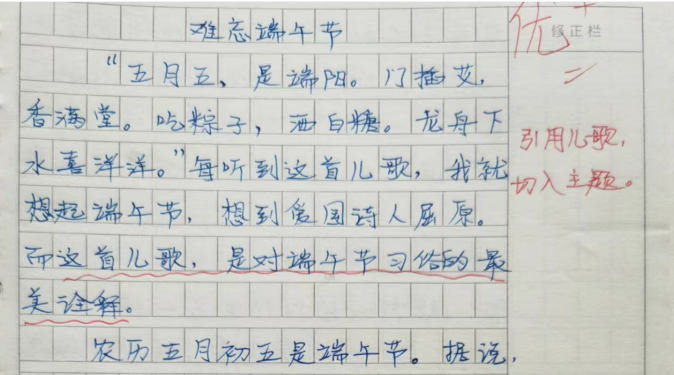 难忘端午节
"五月五、是端阳。门插艾,
香满堂。吃粽子,洒白糖。龙舟下
水喜洋洋。"每听到这首儿歌,我就
想起端午节,想到爱国诗人屈原。
而这首儿歌,是对端午节习俗的最
美诠释。
农历五月初五是端午节。据说,
优+
修正栏
引用儿歌,
切入主题。